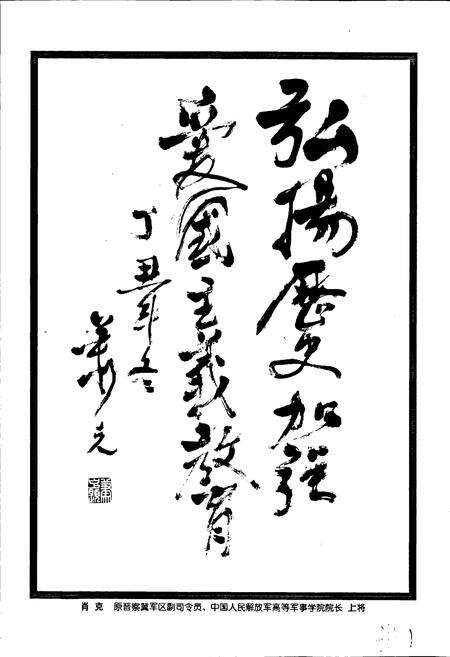 弘揚歷史加強
愛國主義教育
丁丑年冬
蕭克
肖 克 原晋察冀军区副司令员、中国人民解放军高等军事学院院长 上将